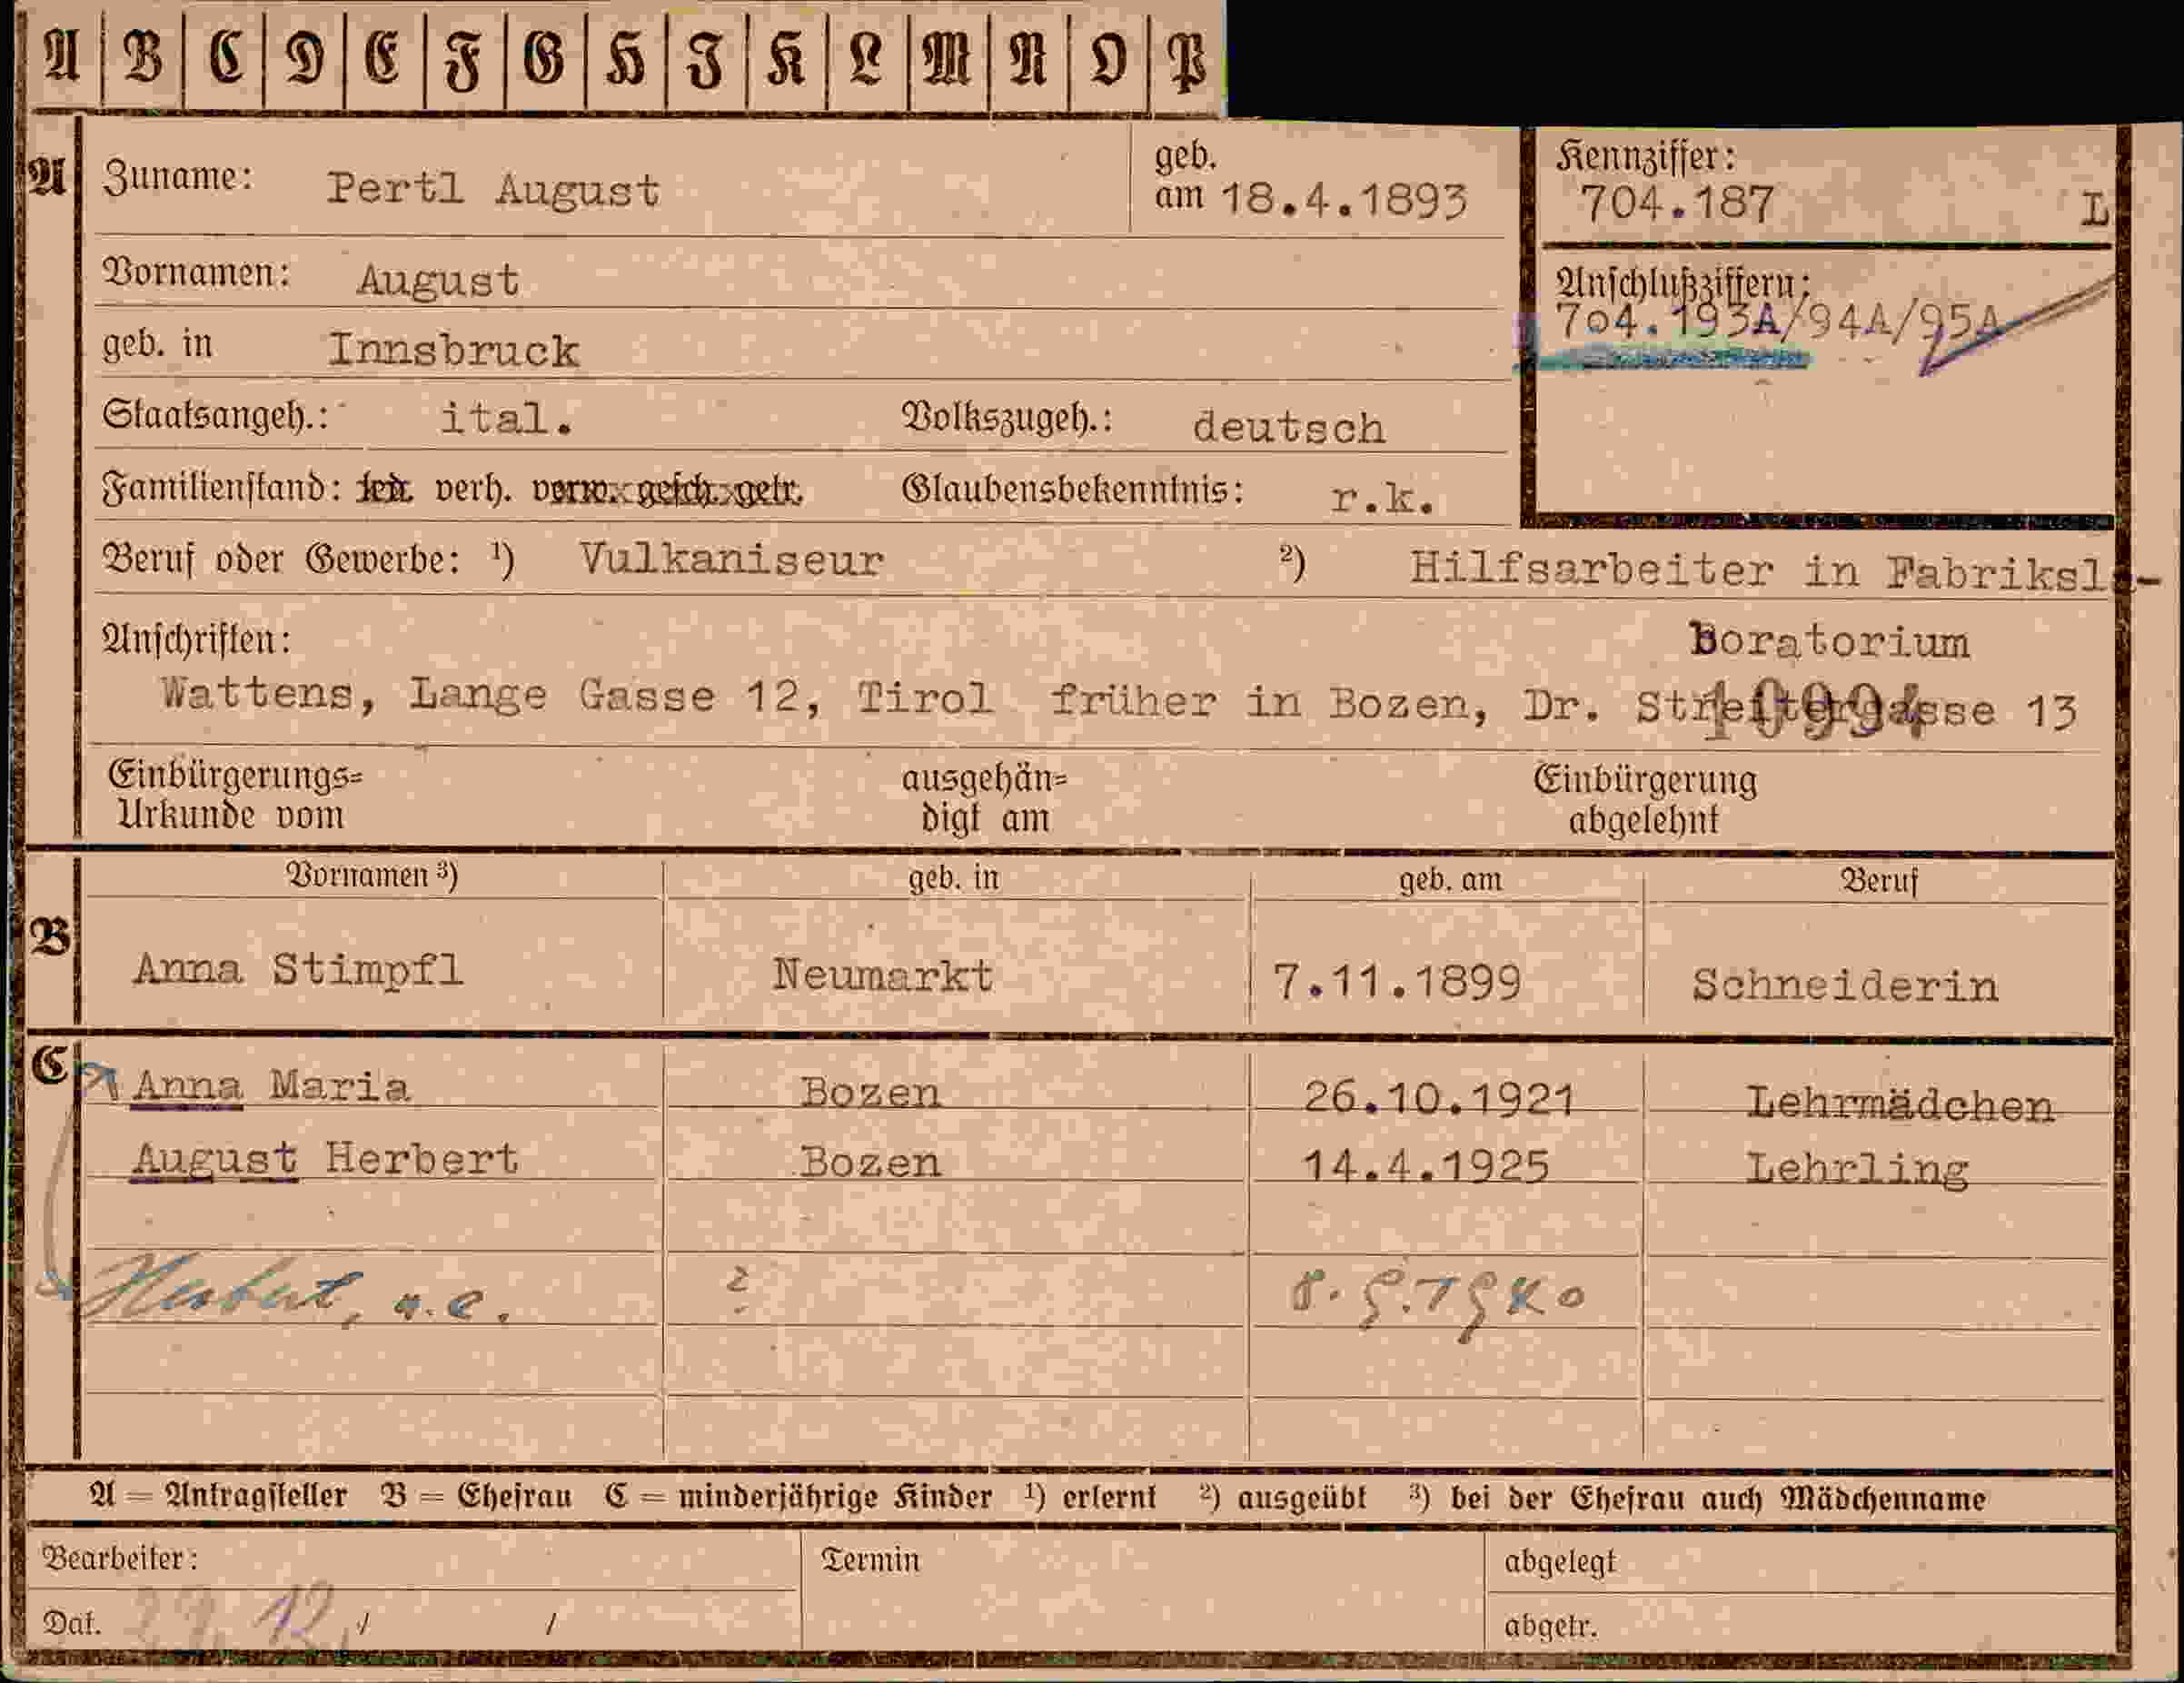 A B C D E F G H I K L M N O P
A Zuname: Pertl August geb. am 18.4.1893
Kennziffer: 704.187 L
Vornamen: August
Anschlußziffern: 704.193A/94A/95A
geb. in Innsbruck
Staatsangeh.: ital. Volkszugeh.: deutsch
Familienstand: led. verh. verw. gesch. getr. Glaubensbekenntnis: r.k.
Beruf oder Gewerbe: ¹) Vulkaniseur ²) Hilfsarbeiter in Fabriksla-
Anschriften: boratorium
Wattens, Lange Gasse 12, Tirol früher in Bozen, Dr. Streitergasse 13
Einbürgerungs= Urkunde vom ausgehän= digt am Einbürgerung abgelehnt
Vornamen ³) geb. in geb. am Beruf
B Anna Stimpfl Neumarkt 7.11.1899 Schneiderin
C Anna Maria Bozen 26.10.1921 Lehrmädchen
August Herbert Bozen 14.4.1925 Lehrling
Herbert, u.e. ?
A = Antragsteller B = Ehefrau C = minderjährige Kinder ¹) erlernt ²) ausgeübt ³) bei der Ehefrau auch Mädchenname
Bearbeiter: Termin abgelegt
Dat. / / abgetr.